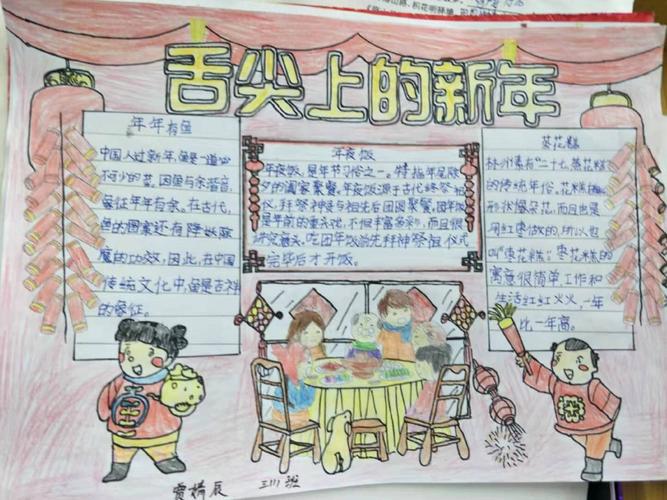 舌尖上的新年
年年有鱼
中国人过新年,鱼是一道必
不可少的菜。因鱼与余谐音,
象征年年有余。在古代,
鱼的图案还有降妖除
魔的功效,因此,在中国
传统文化中,鱼是吉祥
的象征。
年夜饭
年夜饭,是年节习俗之一。特指年尾除
夕的阖家聚餐。年夜饭源于古代终祭祖
仪,拜祭神灵与祖先后团圆聚餐。团年饭
是年前的重头戏,不但丰富多彩,而且很
讲究意头。吃团年饭前先拜神祭祖,仪式
完毕后才开饭。
葵花糕
林州素有“二十七,蒸花糕”
的传统年俗,花糕
形状像葵花,而且也是
用红枣做的,所以也
叫“枣花糕”。枣花糕的
寓意很简单,工作和
生活红红火火,一年
比一年高。
贾婧辰
三川班